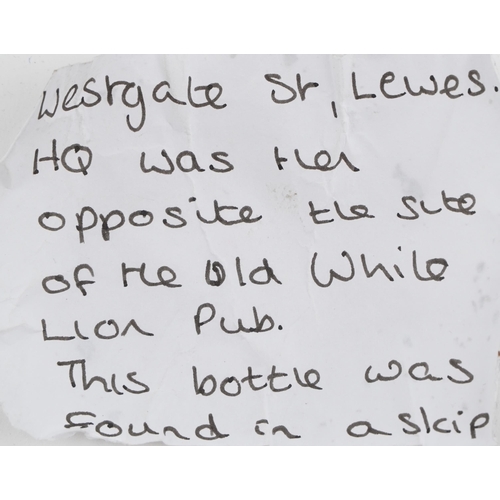 Westgate St, Lewes.
HQ was then
opposite the site
of the Old White
Lion Pub.
This bottle was
found in a skip